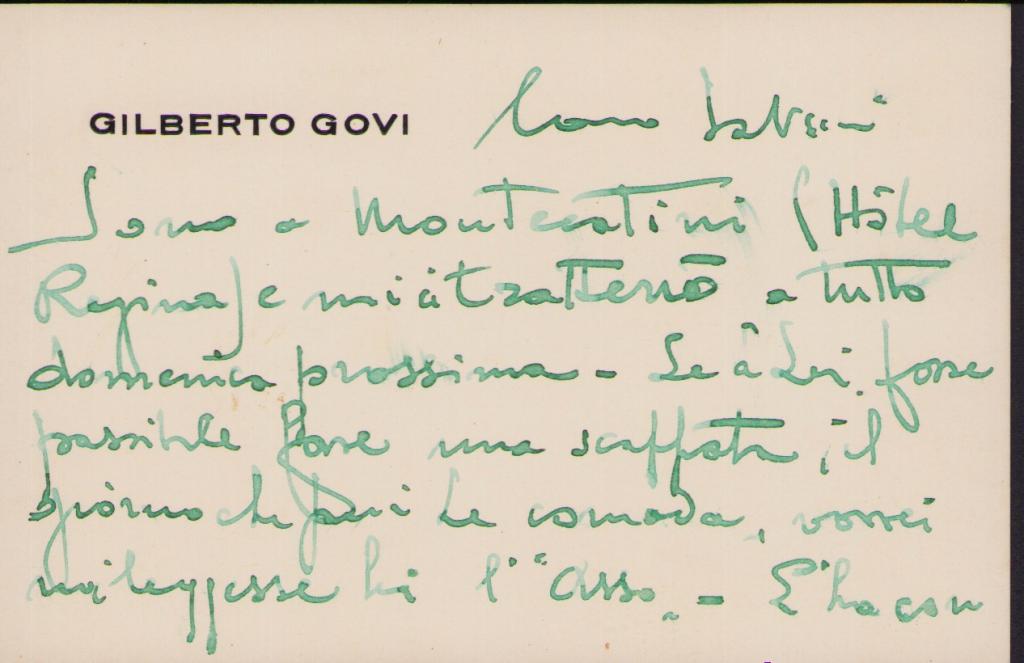 GILBERTO GOVI
Caro
Sono a Montecatini (Hôtel
Regina) e mi ci tratterrò a tutto
domenica prossima - Se a Lei fosse
possibile fare una scappata, il
giorno che più Le comoda, vorrei
mi leggesse Lei l' "Asso. - L'ha con